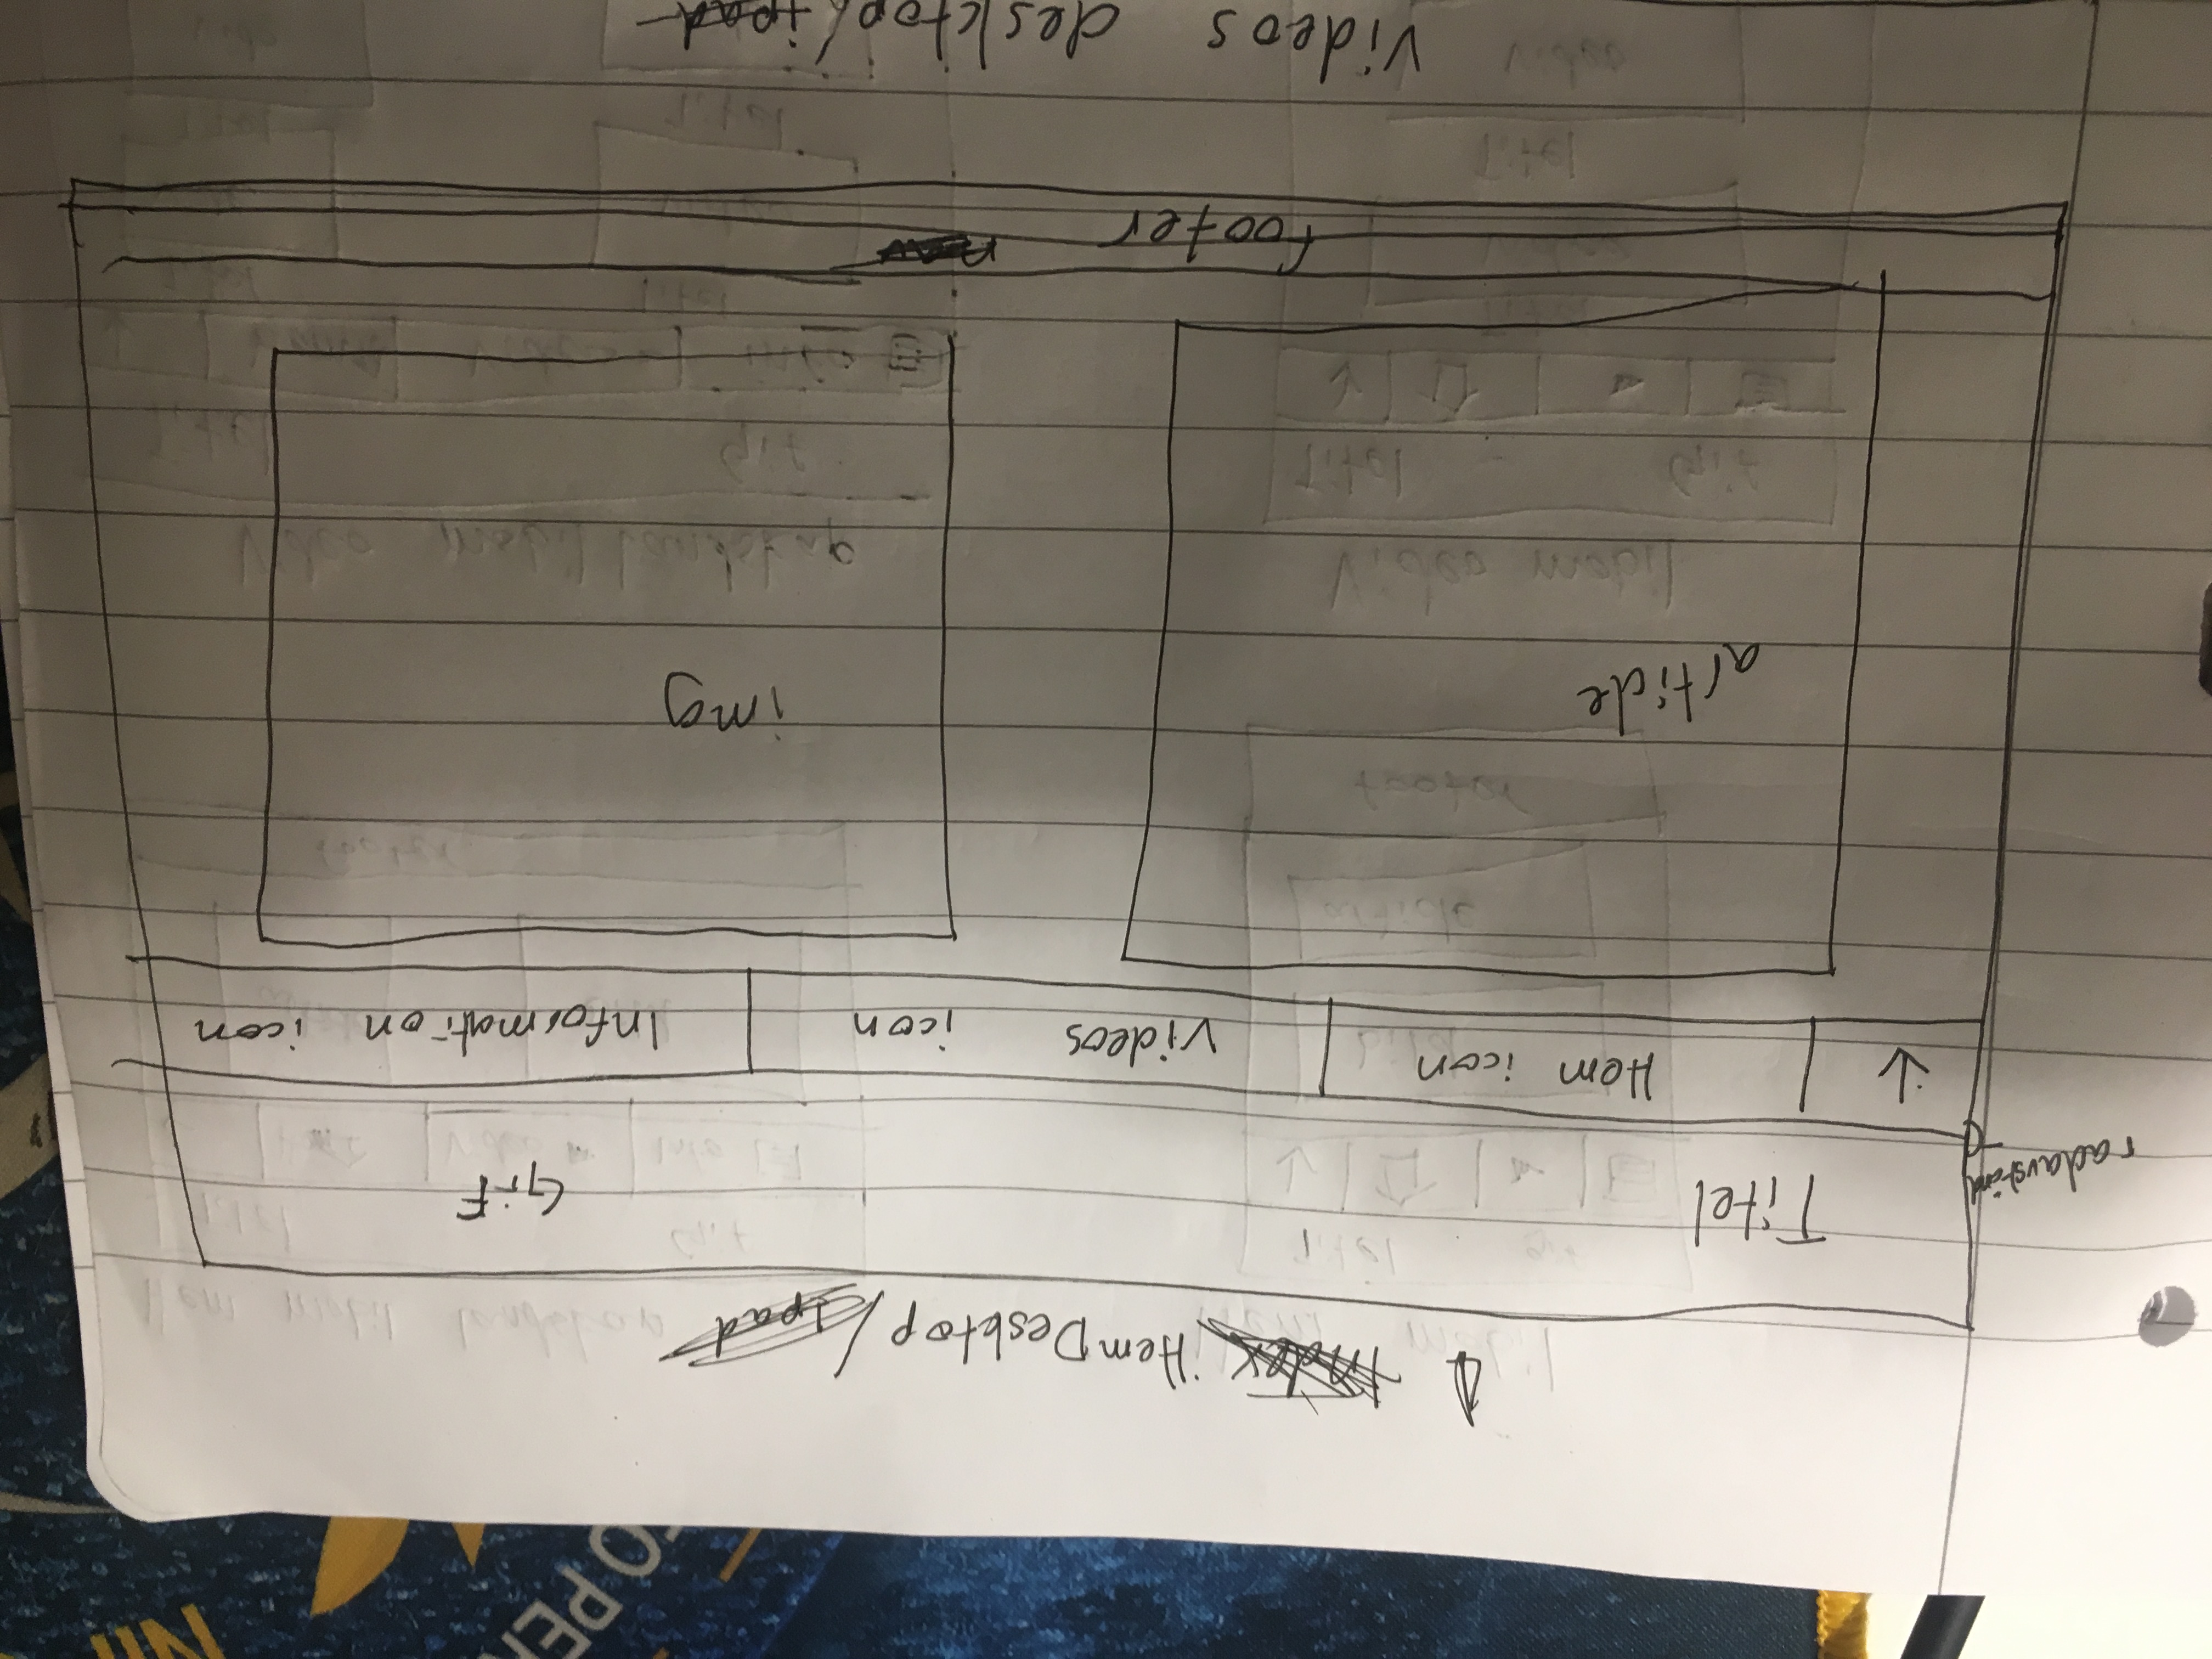 Hem Desktop/ipad
Titel GiF
radavstånd
↓ Hem icon Videos icon Information icon
article img
footer
Videos desktop/ipad
TO PER